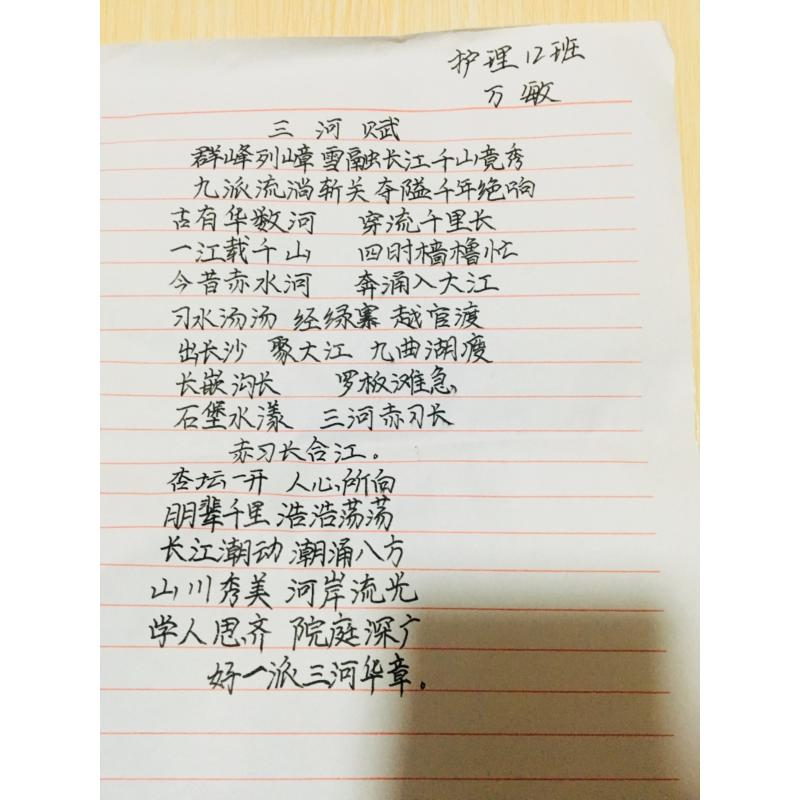 护理12班
万敏
三河赋
群峰列嶂 雪融长江 千山竟秀
九派流淌 斩关夺隘 千年绝响
古有华数河 穿流千里长
一江载千山 四时樯橹忙
今昔赤水河 奔涌入大江
习水汤汤 经绿寨 越官渡
出长沙 聚大江 九曲湖度
长嵌沟长 罗板滩急
石堡水漾 三河赤习长
赤习长合江。
杏坛一开 人心所向
朋辈千里 浩浩荡荡
长江潮动 潮涌八方
山川秀美 河岸流光
学人思齐 院庭深广
好一派三河华章。